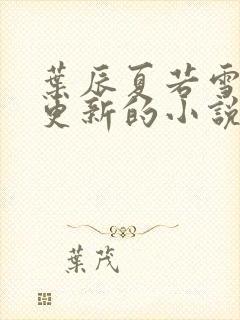 葉辰夏若雪
更新的小說
葉茂